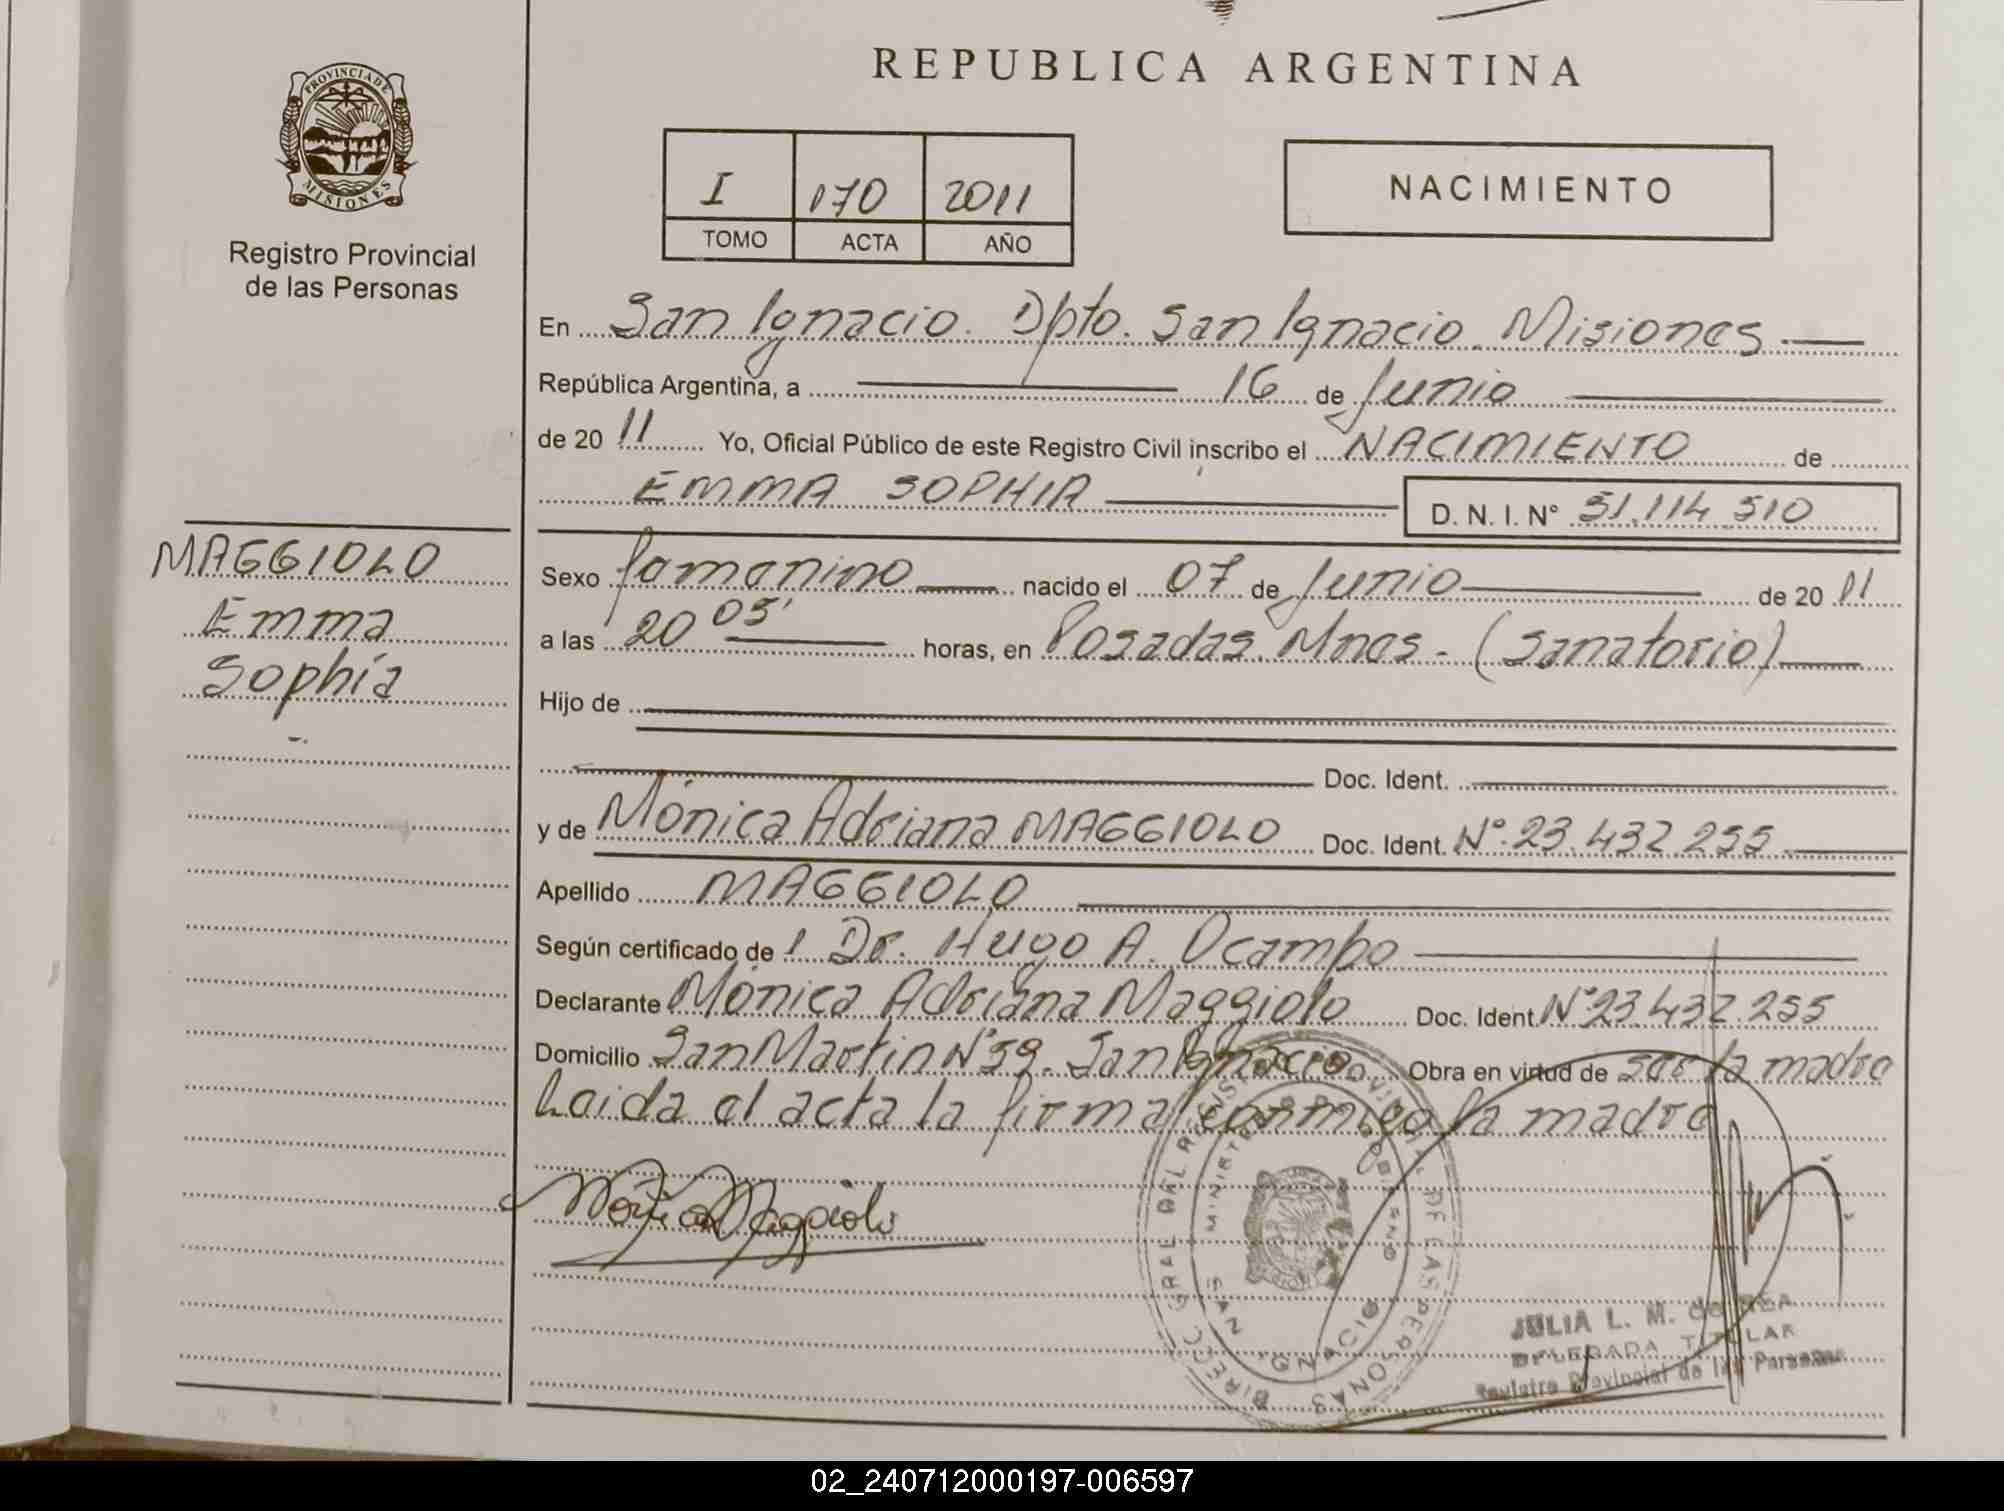 REPUBLICA ARGENTINA
PROVINCIA DE
MISIONES
Registro Provincial
de las Personas
I 170 2011
TOMO ACTA AÑO
NACIMIENTO
En San Ignacio. Dpto. San Ignacio. Misiones
República Argentina, a 16 de Junio
de 20 11 Yo, Oficial Público de este Registro Civil inscribo el NACIMIENTO de
EMMA SOPHIA D. N. I. N° 51.114.510
MAGGIOLO
Emma
Sophia
Sexo femenino nacido el 07 de Junio de 20 11
a las 20 05' horas, en Posadas. Mnes. - (Sanatorio)
Hijo de
Doc. Ident.
y de Mónica Adriana MAGGIOLO Doc. Ident. N° 23.432.255
Apellido MAGGIOLO
Según certificado de l Dr. Hugo A. Ocampo
Declarante Mónica Adriana Maggiolo Doc. Ident. N° 23.432.255
Domicilio San Martin N° 59. San Ignacio Obra en virtud de ser la madre
Leida el acta la firma conmigo la madre
Mónica Maggiolo
DIREC. GRAL. DEL REGISTRO PROVINCIAL DE LAS PERSONAS
MINISTERIO DE GOBIERNO
SAN IGNACIO
JULIA L. M. de REA
DELEGADA TITULAR
Registro Provincial de las Personas
02_240712000197-006597